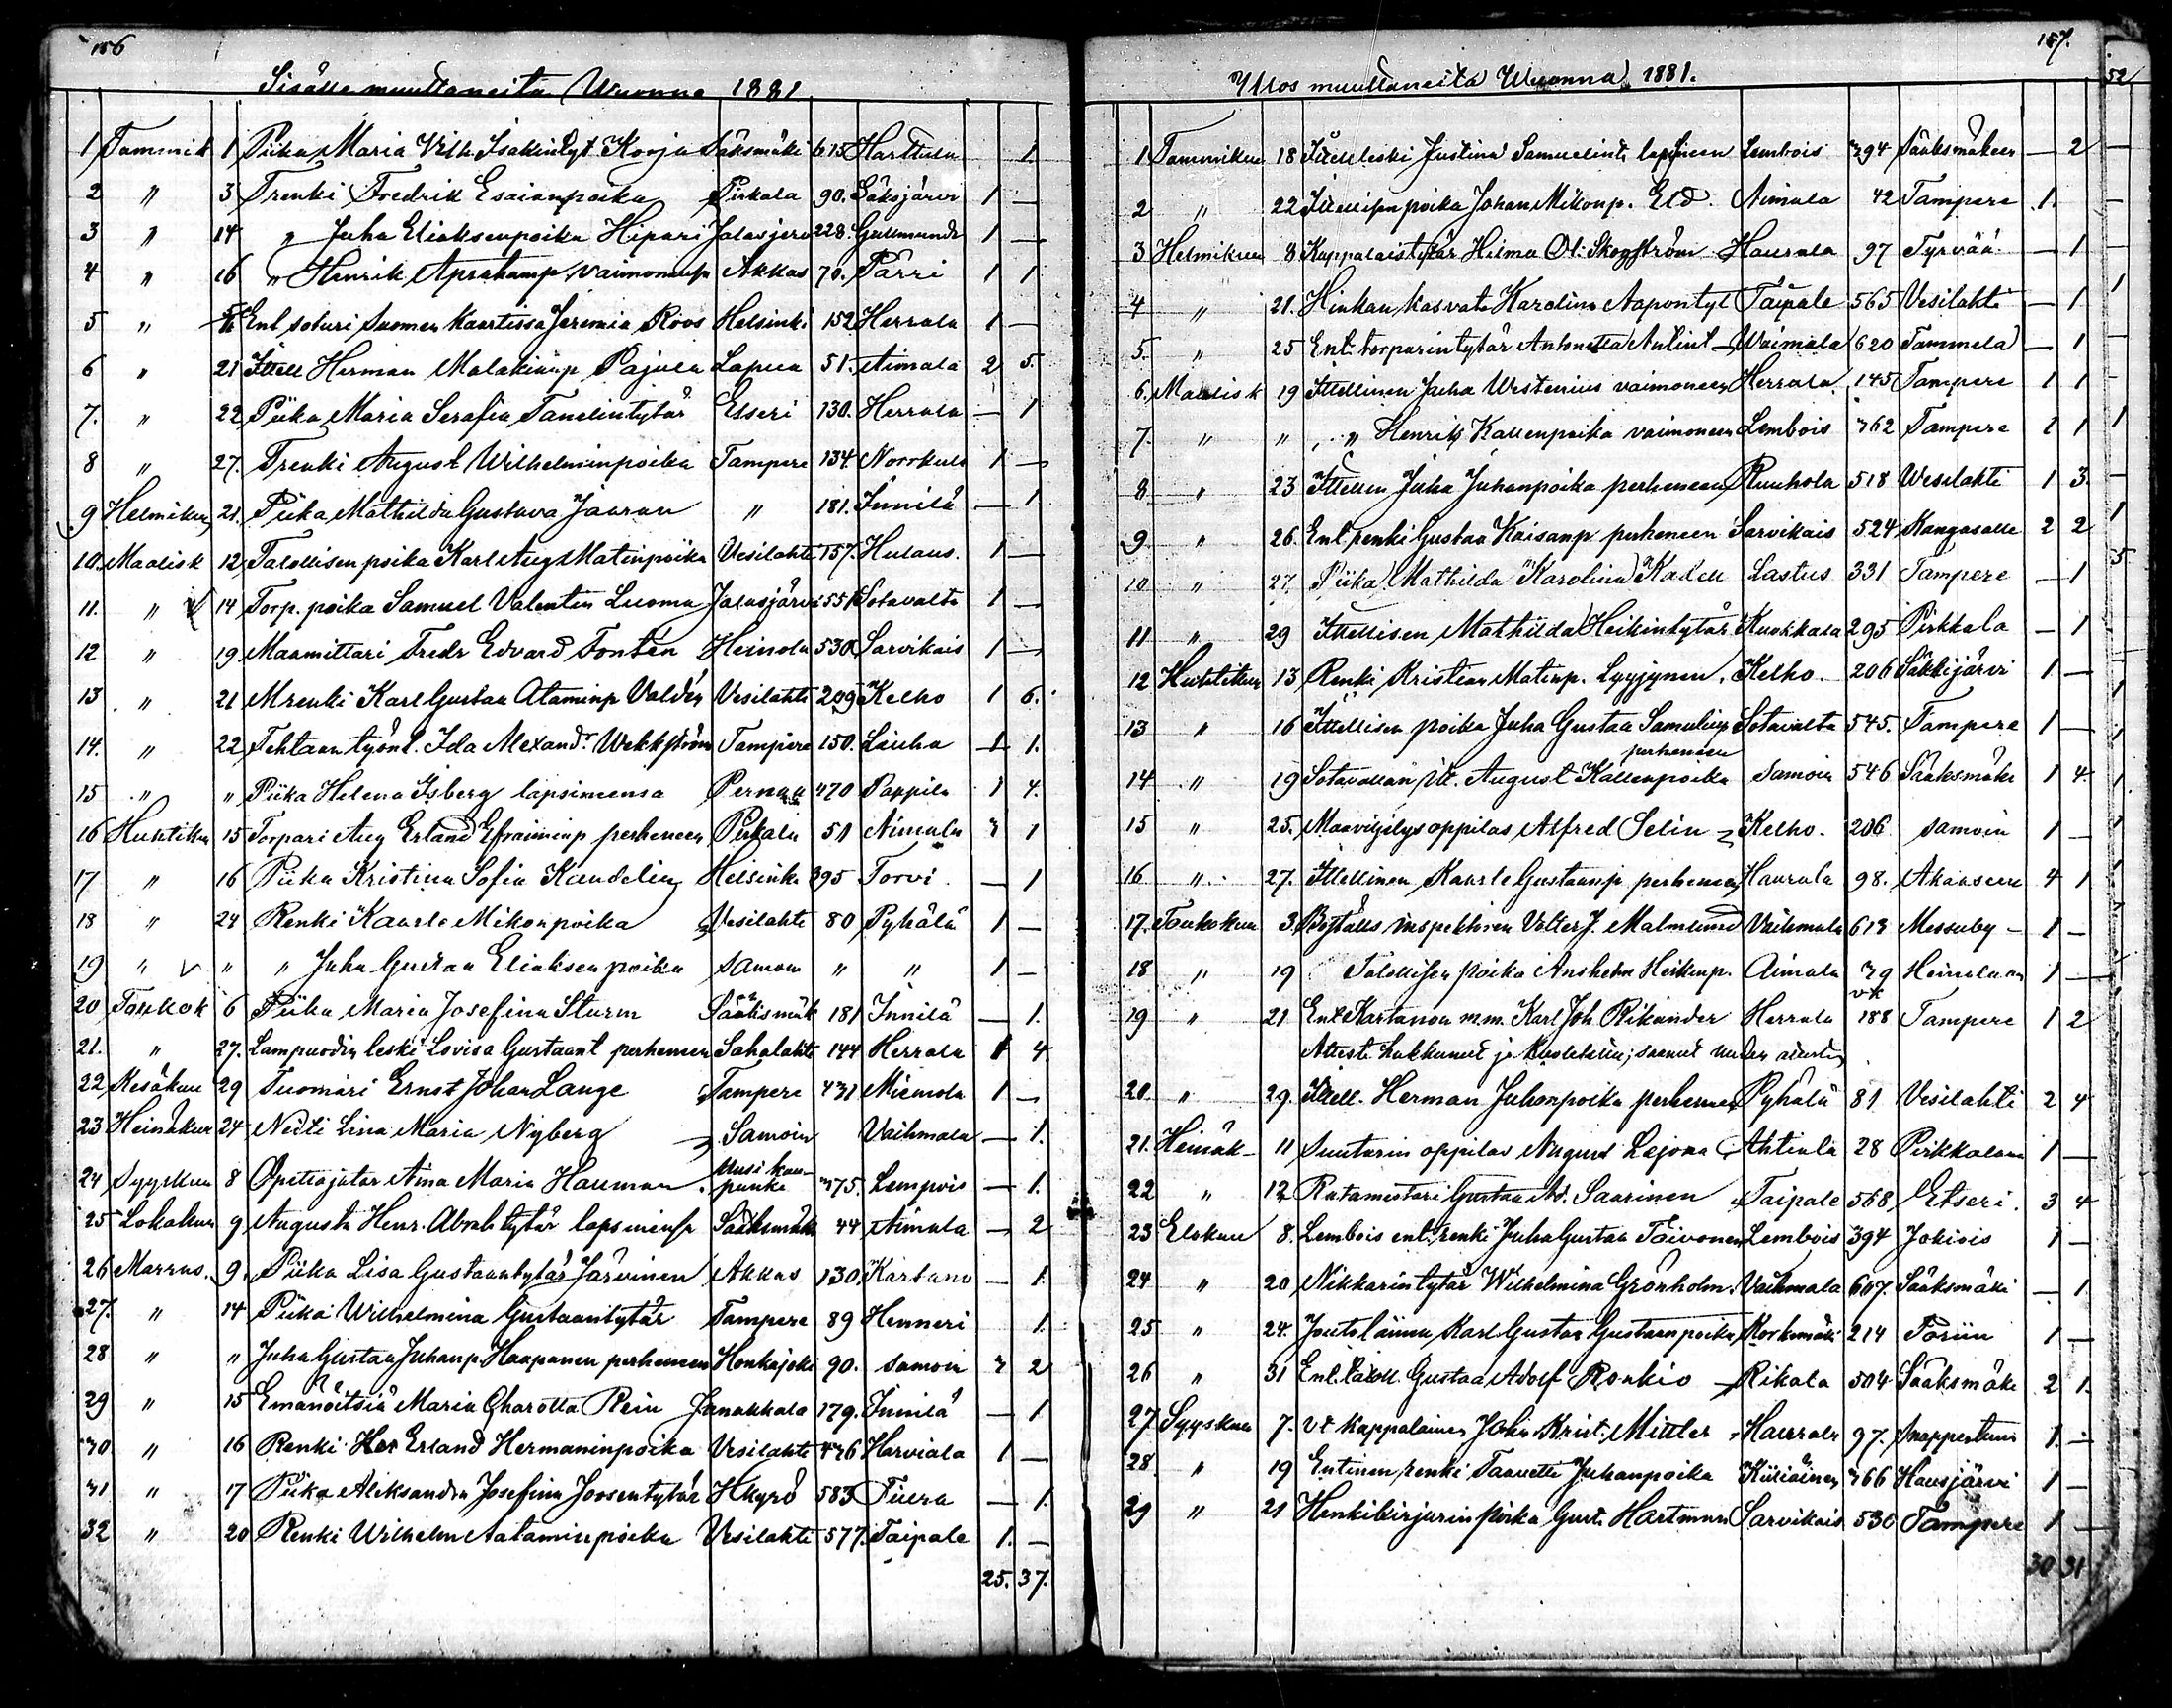 156
Sisälle muuttaneita Wuonna 1881
1 Tammik 1 Piika Maria Vilh. Isakintyt. Korja Säksmäki 615 Harttula 1
2 " 3 Trenki Fredrik Esaianpoika Pirkala 90. Säksjärvi 1 —
3 " 14 " Juha Eliaksenpoika Hipari Jalasjerv 228. 1 —
4 " 16 " Henrik vaimonensa Akkas 70. Pärri 1 1
5 " Ent soturi Suomen Kaartissa Jeremia Roos Helsinki 152 Herrala 1 —
6 " 21 Ittell Herman Malakinnp Pajula Lapua 51. Aimala 2 5.
7. " 22 Piika Maria Serafia Tanelintytär Etseri 130. Herrala — 1
8 " 27. Trenki August Wilhelminpoika Tampere 134. Norrkulä 1 —
9 Helmikuu 21. Piika Mathilda Gustava Jaaran " 181. Innilä — 1
10. Maalisk 12 Talollisen poika Karl Aug Matinpoika Vesilahti 157. Hulaus. 1 —
11. " 14 Torp. poika Samuel Valentin Luoma Jalasjärvi 551 Sotavalta 1 —
12 " 19 Maamittari Fredr Edvard Fontén Heinola 530 Sarvikais 1 —
13 " 21 Mrenki Karl Gustaa Ataminp Valdén Vesilahti 209 Kelho 1 6.
14. " 22 Tehtaan työnt. Ida Alexandr. Wekkström Tampere 150. Liuha 1 1.
15 " " Piika Helena Isberg lapsineensa Pernaa 470 Pappila 1 4.
16 Huhtikuu 15 Torpari Aug Erland Efraiminp perheneen Pirkala 51 Aimala 3 1
17 " 16 Piika Kristina Sofia Kandelin Helsinki 395 Torvi — 1
18 " 24 Renki Kaarle Mikonpoika Vesilahti 80 Pyhälä 1 —
19 " " " Juha Gustaa Eliaksenpoika samoin " " 1 —
20 Toukok 6 Piika Maria Josefina Sturm Sääksmäk 181 Innilä — 1.
21. " 27. Lampuodin leski Lovisa Gustaant perhenen Sahalahti 144 Herrala 1 4
22 Kesäkuu 29 Tuomari Ernst Johan Lange Tampere 431 Miemola 1 —
23 Heinäkuu 24 Neiti Lina Maria Nyberg Samoin Vaihmala — 1.
24 Syyskuu 8 Opettajatar Aina Maria Hauman Uusi kau-
punki 375. Lempois — 1.
25 Lokakuu 9 Augusta Henr. Abrah.tytär lapsinensa Sääksmäki 44 Aimala — 2
26 Marras. 9. Piika Lisa Gustaantytär Järvinen Akkas 130 Kartano — 1
27. " 14 Piika Wilhelmina Gustaantytär Tampere 89 Henneri 1.
28 " " Juha Gustaa Juhanp Haapanen perheneen Honkajoki 90. samoin 3 2
29 " 15 Emännöitsiä Maria Charotta Rein Janakkala 179. Innilä — 1
30 " 16 Renki Her Erland Hermaninpoika Vesilahti 436 Harviala 1 —
31 " 17 Piika Aleksandra Josefina Joosentytär Hkyrö 583 Tiura — 1.
32 " 20 Renki Wilhelm Aataminpoika Vesilahti 577. Taipale 1. —
25. 37.
157.
Ullos muuttaneita Wuonna 1881.
1 Tammikuu 18 Ittell leski Justina Samuelint. lapsineen Lembois 394 Sääksmäkeen — 2
2 " 22 Ittellisen poika Johan Mikonp. Eld. Aimala 42 Tampere 1.
3 Helmikuu 8 Kappalaistytär Hilma Ol. Skogström Haurala 97 Tyrvää — 1
4 " 21. Hinkan kasvatti Karolina Aapontyt Taipale 565 Vesilahti — 1
5. " 25 Ent. torparintytär Antonetta Antint Vaimala 620 Tammela — 1
6. Maalisk 19 Ittellinen Juha Westerius vaimoneen Herrala 145 Tampere 1 1
7. " " " Henrik Kallenpoika vaimoneen Lembois 362 Tampere 1 1
8 " 23 Ittellin Juha Juhanpoika perheneen Ruuhola 518 Wesilahti 1 3.
9 " 26. Ent renki Gustaa Kaisanp perheneen Sarvikais 524 Kangasalle 2 2
10 " 27. Piika Mathilda Karolina Kadell Lastus 331 Tampere — 1
11 " 29 Ittellisen Mathilda Heikintytär Kuokkala 295 Pirkkala — 1
12 Huhtikuu 13 Renki Kristian Matinp. Lyyjynen Kelho. 206 Säkkijärvi 1 —
13 " 16 Ittellisen poika Juha Gustaa Samulinp Sotavalta 545. Tampere 1 —
perheneen
14 " 19 Sotavallan itt. August Kallenpoika samoin 546 Sääksmäki 1 4.
15 " 25. Maaviljelys oppilas Alfred Selin Kelho. 206 samoin 1 —
16 " 27. Ittellinen Kaarle Gustaanp perheneen Haurala 98. Akaaseen 4 1
17. Toukokuu 3. Boställs inspehtorin Volter J. Malmlund Vaihmala 613 Messuby 1 —
18 " 19 Talollisen poika Anshelm Heikinp. Aimala 39 Heinolaan 1 —
19 " 21 Ent Kartanon m.m. Karl Joh Rikander Herrala 188 Tampere 1 2
20. " 29. Ittell. Herman Juhanpoika perheneen Pyhälä 81 Vesilahti 2 4
21. Heinäk 11 Suutarin oppilas August Lajona Ahtiala 28 Pirkkalaan 1 —
22 " 12 Ratamestari Gustaa Ad. Saarinen Taipale 568 Etseri. 3 4
23 Elokuu 8. Lembois ent. renki Juha Gustaa Toivonen Lembois 394 Jokiois 1 —
24 " 20 Nikkarintytär Wilhelmina Grönholm Vaihmala 607. Sääksmäki — 1.
25 " 24. Karl Gustaa Gustaanpoika Korkemäki 214 Poriin 1 —
26 " 31 Ent. taloll. Gustaa Adolf Ronkio Rikala 504 Sääksmäki 2 1.
27 Syyskuu 7. vt kappalainen Joh. Krist. Haurala 97. Snappertuna 1. —
28 " 19 Entinen renki Taavetti Juhanpoika Kiiliäinen 366 Hausjärvi 1 —
29 " 21 Henkikirjurin poika Gust. Hartman Sarvikais 530 Tampere 1 —
30 31
52